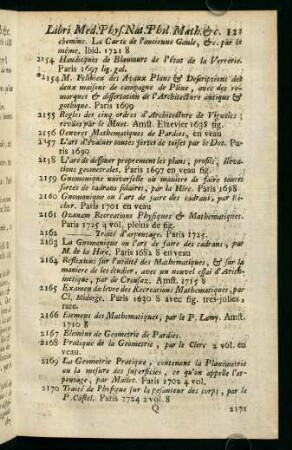 Libri Med. Phys. Nat. Phil. Math. &c. 121
chemins. La Carte de l'ancienne Gaule, &c. par le
même, Ibid. 1721 8
2154 Haudicquer de Blancourt de l'état de la Verrerie.
Paris 1697 lig. gal.
*2154 M. Felibien des Avaux Plans & Descriptions des
deux maisons de campagne de Pline, avec des re-
marques & dissertation de l'Architecture antique &
gothique. Paris 1699
2155 Regles des cinq ordres d'Architecture de Vignelles
revûes par le Muet. Amst. Elzevier 1638 fig.
2156 Oeuvres Mathematiques de Pardies, en veau
2157 L'art d'évaluer toutes sortes de toises par le Dot. Pa-
ris 1690
2158 L'art de dessiner proprement les plans, profils, éleva-
tions geometrales. Paris 1697 en veau fig.
2159 Gnomonique universelle ou maniere de faire toutes
sortes de cadrans solaires, par la Hire. Paris 1698
2160 Gnomonique ou l'art de faire des cadrans, par Ri-
cher. Paris 1701 en veau
2161 Ozanam Recreations Physiques & Mathematiques.
Paris 1725 4 vol. pleins de fig.
2162 Traité d'arpentage. Paris 1725.
2163 La Gnomonique ou l'art de faire des cadrans, par
M. de la Hire. Paris 1682 8 en veau
2164 Reflexions sur l'utilité des Mathematiques, & sur la
maniere de les étudier. avec un nouvel essai d'Arith-
metique, par de Croufaz. Amst. 1715 8
2165 Examen du livre des Recreations Mathematiques, par
Cl. Midorge. Paris 1630 8 avec fig. tres-jolies,
rare.
2166 Elemens des Mathematiques, par le P. Lamy. Amst.
1710 8
2167 Elemens de Geometrie de Pardies.
2168 Pratique de la Geometrie, par le Clerc 2 vol. en
veau.
2169 La Geometrie Pratique, contenant la Planimetrie
ou la mesure des superficies, ce qu'on appelle l'ar-
pentage, par Mallet. Paris 1702 4 vol.
2170 Traité de Physique sur la pesanteur des corps, par le
P. Castel. Paris 1724 2 vol. 8
Q 2171